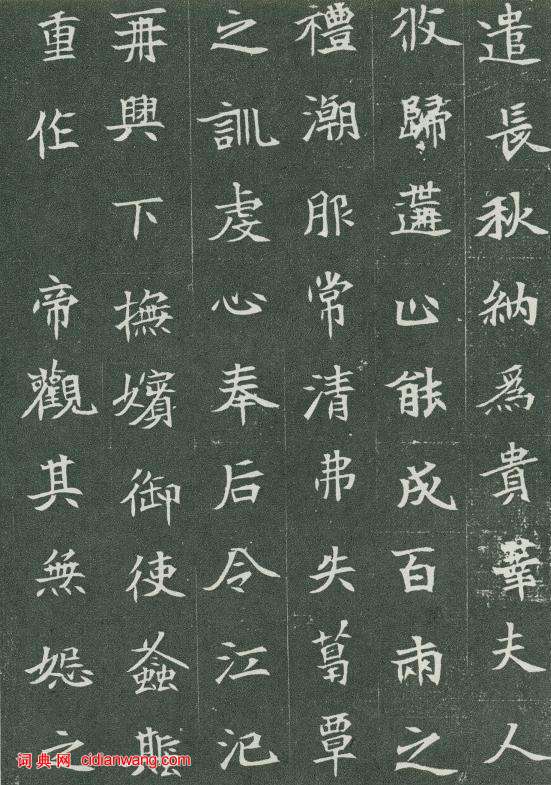 遣長秋納爲貴華夫人
攸歸遘止能成百兩之
禮潮服常清弗失葛覃
之訓虔心奉后令江汜
再興下撫嬪御使螽斯
重作 帝觀其無之
词典网 cidianwang.com